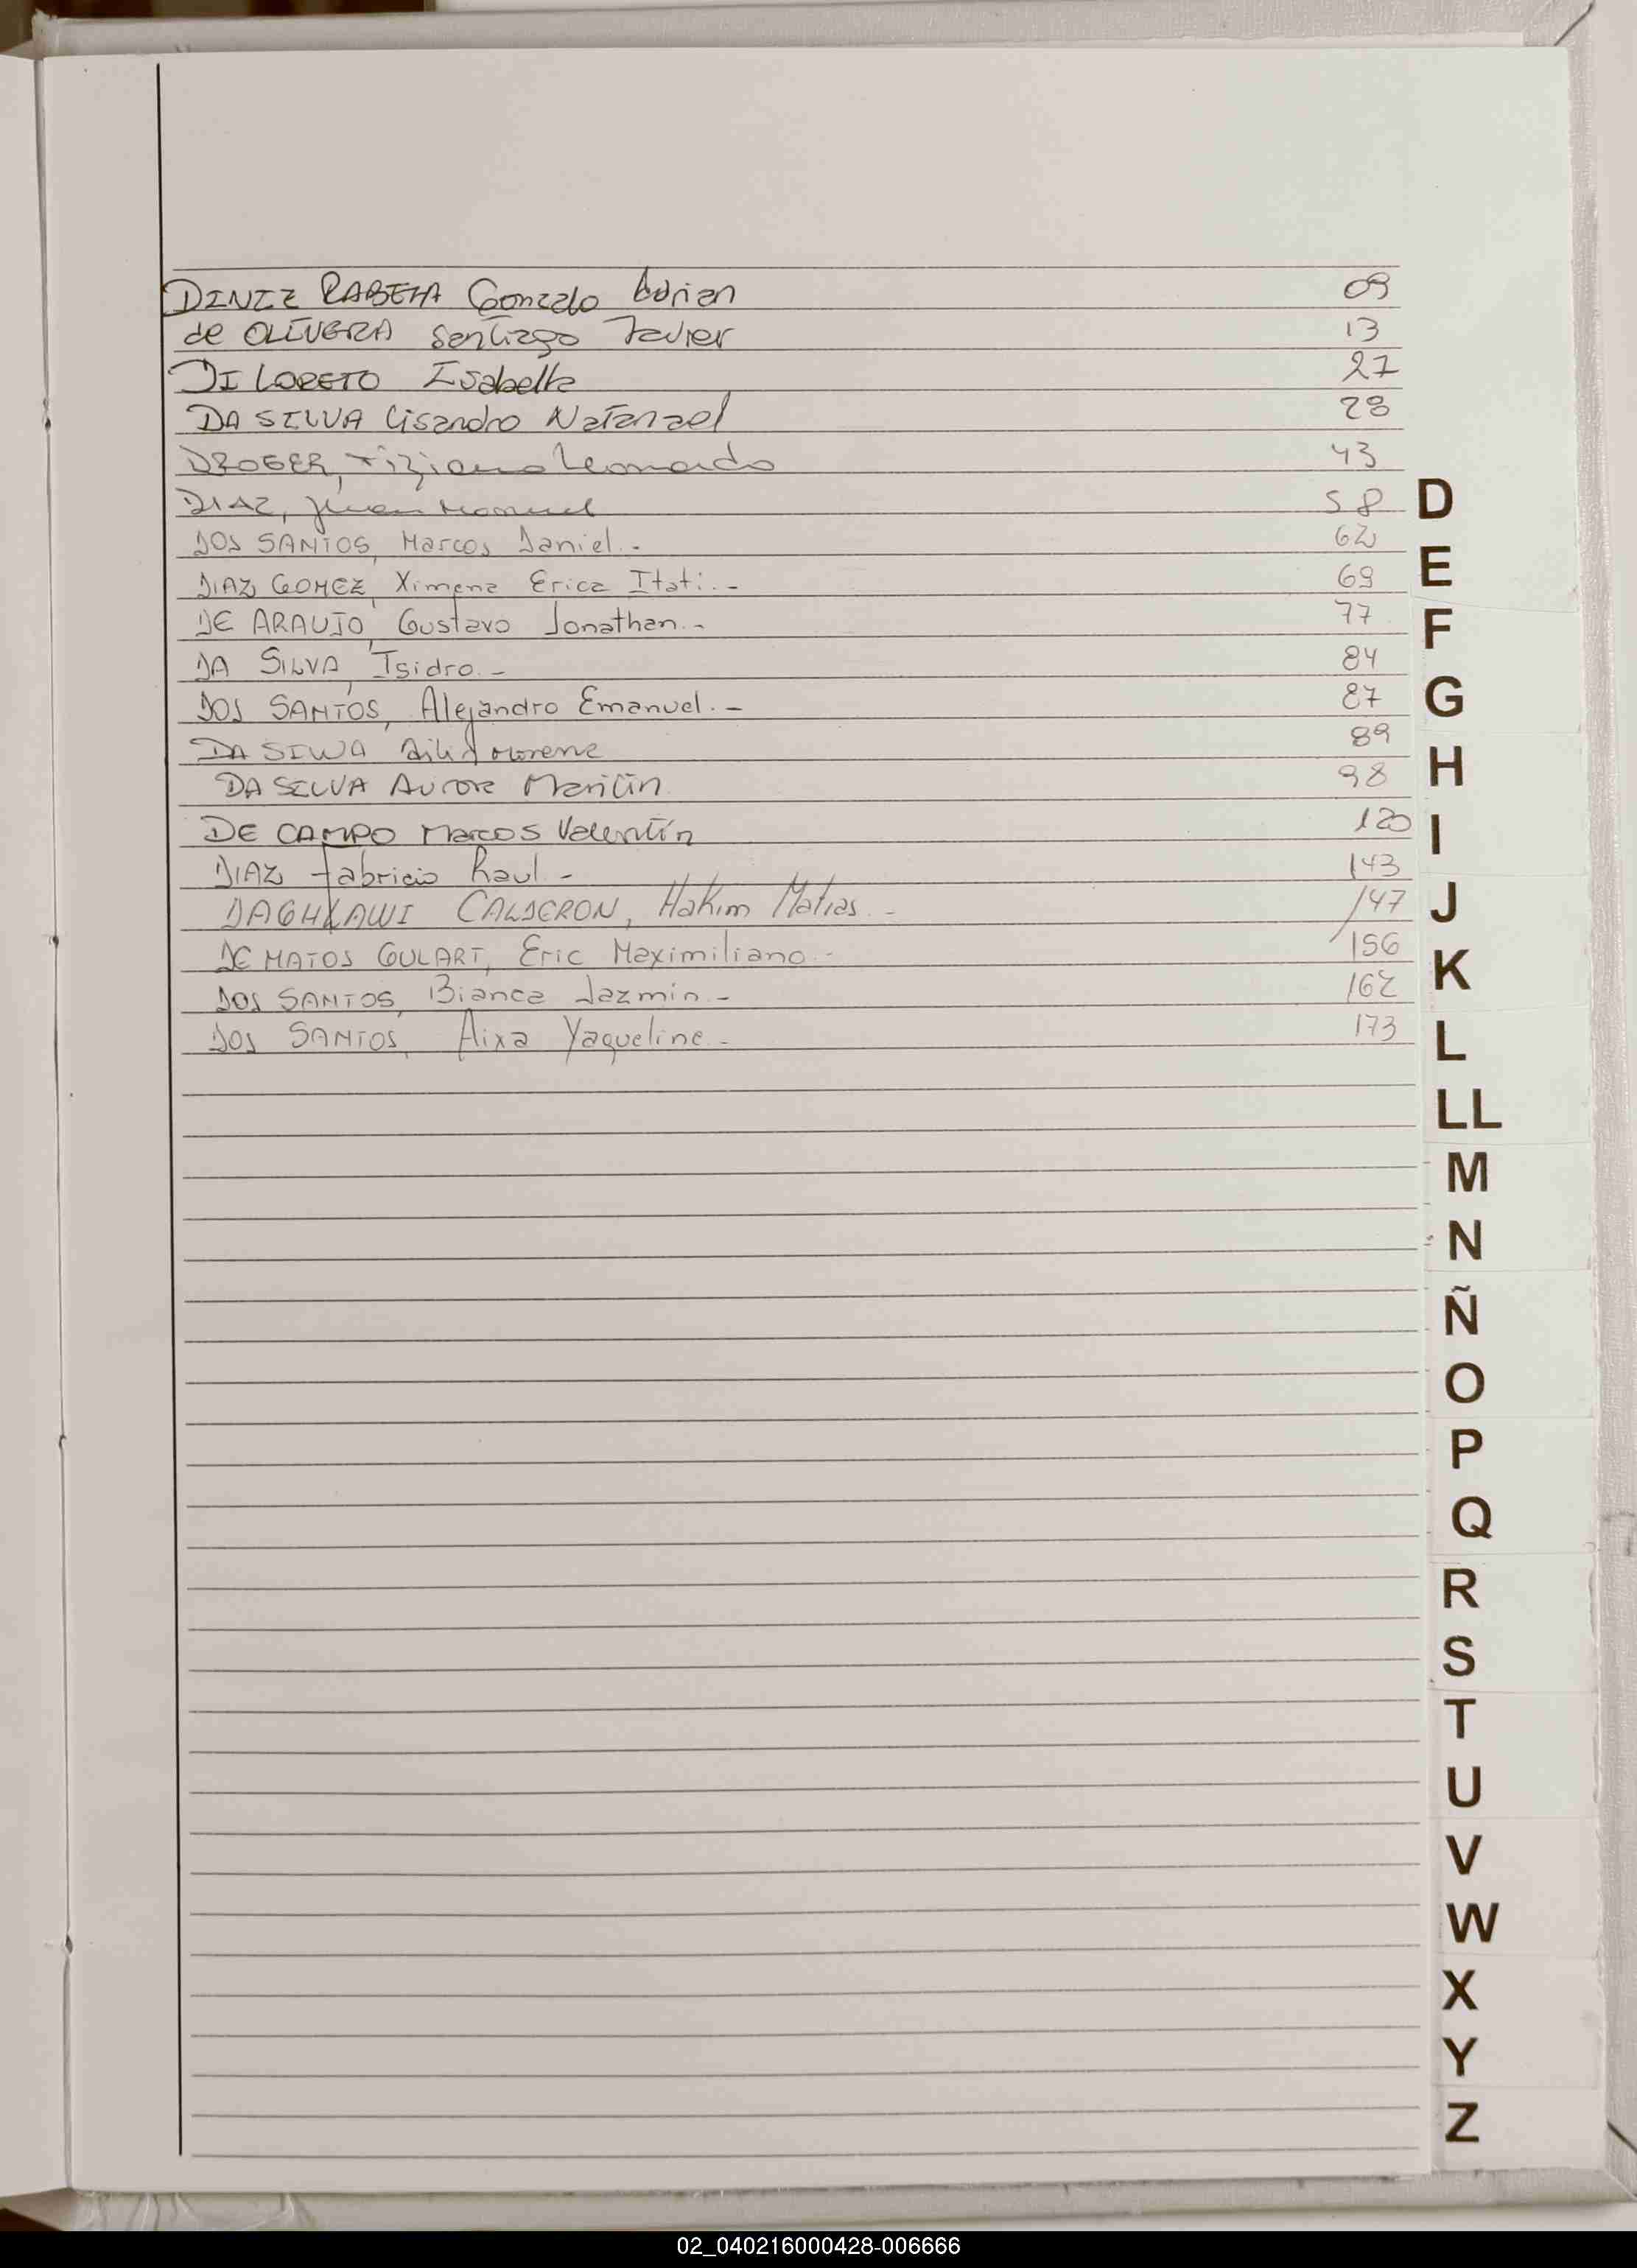 DINIZ RABETA Gonzalo Adrian 09
de OLIVERA Santiago Javier 13
DI LORETO Isabella 27
DA SILVA Lisandro Natanael 28
DROGER, Tiziano Leonardo 43
DIAZ, Juan Manuel 58
DOS SANTOS, Marcos Daniel.- 62
DIAZ GOMEZ, Ximena Erica Itati.- 69
DE ARAUJO, Gustavo Jonathan.- 77
DA SILVA, Isidro.- 84
DOS SANTOS, Alejandro Emanuel.- 87
DA SILVA Morena 89
DA SILVA Aurora Marilin 98
DE CAMPO Marcos Valentín 120
DIAZ Fabricio Raul - 143
DAGHLAWI CALDERON, Hakim Matias.- 147
DE MATOS GULART, Eric Maximiliano.- 156
DOS SANTOS, Bianca Jazmin.- 162
DOS SANTOS, Aixa Yaqueline.- 173
D
E
F
G
H
I
J
K
L
LL
M
N
Ñ
O
P
Q
R
S
T
U
V
W
X
Y
Z
02_040216000428-006666